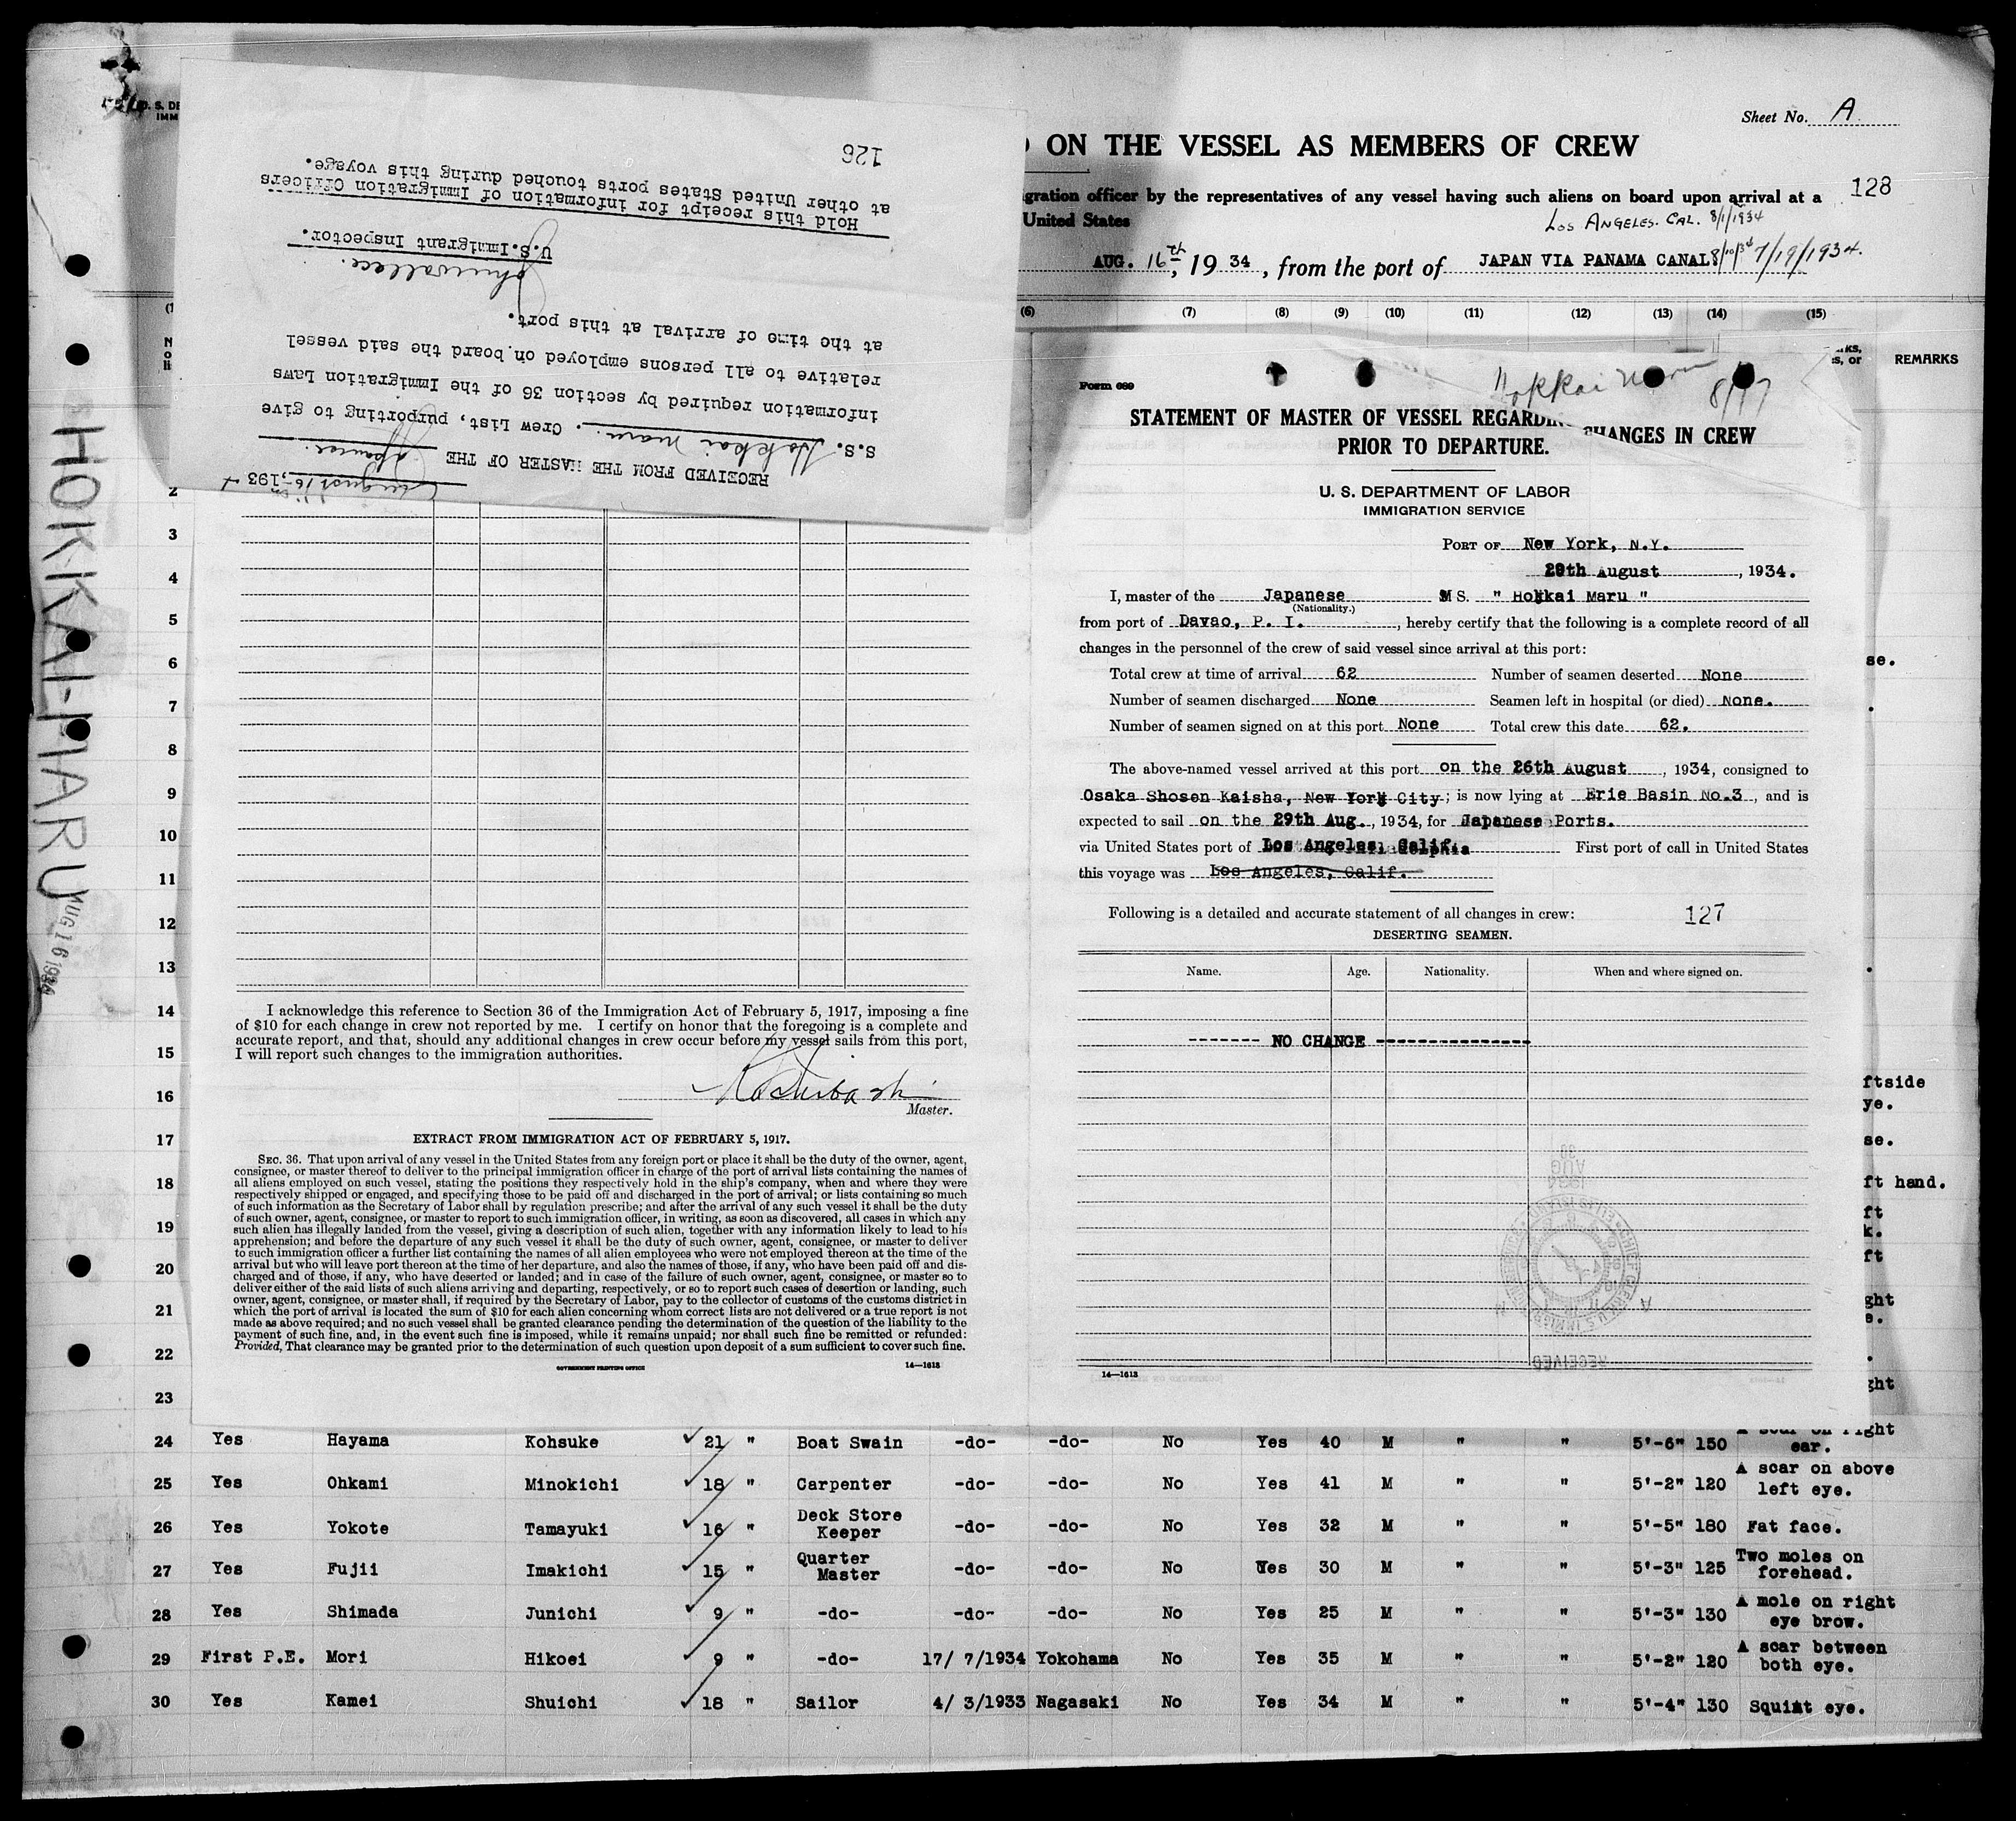 Sheet No. A
ON THE VESSEL AS MEMBERS OF CREW
gration officer by the representatives of any vessel having such aliens on board upon arrival at a
128
United States
Los Angeles. Cal. 8/1/1934
AUG. 16th, 1934, from the port of JAPAN VIA PANAMA CANAL. 7/19/1934.
(6) (7) (8) (9) (10) (11) (12) (13) (14) (15)
REMARKS
HOKKAI-MARU
AUG 16 1934
126
August 16-, 1934
RECEIVED FROM THE MASTER OF THE Japanese
S.S. Hokkai Maru. Crew List, purporting to give
information required by section 36 of the Immigration Laws
relative to all persons employed on board the said vessel
at the time of arrival at this port.
John Wallace.
U.S. Immigrant Inspector.
Hold this receipt for information of Immigration Officers
at other United States ports touched during this voyage.
2
3
4
5
6
7
8
9
10
11
12
13
14
15
16
17
18
19
20
21
22
23
I acknowledge this reference to Section 36 of the Immigration Act of February 5, 1917, imposing a fine
of $10 for each change in crew not reported by me. I certify on honor that the foregoing is a complete and
accurate report, and that, should any additional changes in crew occur before my vessel sails from this port,
I will report such changes to the immigration authorities.
Master.
EXTRACT FROM IMMIGRATION ACT OF FEBRUARY 5, 1917.
SEC. 36. That upon arrival of any vessel in the United States from any foreign port or place it shall be the duty of the owner, agent,
consignee, or master thereof to deliver to the principal immigration officer in charge of the port of arrival lists containing the names of
all aliens employed on such vessel, stating the positions they respectively hold in the ship's company, when and where they were
respectively shipped or engaged, and specifying those to be paid off and discharged in the port of arrival; or lists containing so much
of such information as the Secretary of Labor shall by regulation prescribe; and after the arrival of any such vessel it shall be the duty
of such owner, agent, consignee, or master to report to such immigration officer, in writing, as soon as discovered, all cases in which any
such alien has illegally landed from the vessel, giving a description of such alien, together with any information likely to lead to his
apprehension; and before the departure of any such vessel it shall be the duty of such owner, agent, consignee, or master to deliver
to such immigration officer a further list containing the names of all alien employees who were not employed thereon at the time of the
arrival but who will leave port thereon at the time of her departure, and also the names of those, if any, who have been paid off and dis-
charged and of those, if any, who have deserted or landed; and in case of the failure of such owner, agent, consignee, or master so to
deliver either of the said lists of such aliens arriving and departing, respectively, or so to report such cases of desertion or landing, such
owner, agent, consignee, or master shall, if required by the Secretary of Labor, pay to the collector of customs of the customs district in
which the port of arrival is located the sum of $10 for each alien concerning whom correct lists are not delivered or a true report is not
made as above required; and no such vessel shall be granted clearance pending the determination of the question of the liability to the
payment of such fine, and, in the event such fine is imposed, while it remains unpaid; nor shall such fine be remitted or refunded:
Provided, That clearance may be granted prior to the determination of such question upon deposit of a sum sufficient to cover such fine.
GOVERNMENT PRINTING OFFICE 14—1613
Hokkai Maru 8/17
Form 689
STATEMENT OF MASTER OF VESSEL REGARDING CHANGES IN CREW
PRIOR TO DEPARTURE.
U. S. DEPARTMENT OF LABOR
IMMIGRATION SERVICE
PORT OF New York, N.Y.
29th August, 1934.
I, master of the Japanese M S. " Hokkai Maru "
(Nationality.)
from port of Davao, P. I., hereby certify that the following is a complete record of all
changes in the personnel of the crew of said vessel since arrival at this port:
Total crew at time of arrival 62 Number of seamen deserted None
Number of seamen discharged None Seamen left in hospital (or died) None.
Number of seamen signed on at this port None Total crew this date 62.
The above-named vessel arrived at this port on the 26th August, 1934, consigned to
Osaka Shosen Kaisha, New York City; is now lying at Erie Basin No.3, and is
expected to sail on the 29th Aug., 1934, for Japanese Ports.
via United States port of Los Angeles, Calif. First port of call in United States
this voyage was Los Angeles, Calif.
Following is a detailed and accurate statement of all changes in crew: 127
DESERTING SEAMEN.
Name. Age. Nationality. When and where signed on.
------- NO CHANGE ----------------
AUG 30
RECEIVED
14—1613
se.
ftside
ye.
se.
ft hand.
ft
k.
ft
ght
e.
ght
24 Yes Hayama Kohsuke 21 " Boat Swain -do- -do- No Yes 40 M " " 5'-6" 150 A scar on right ear.
25 Yes Ohkami Minokichi 18 " Carpenter -do- -do- No Yes 41 M " " 5'-2" 120 A scar on above left eye.
26 Yes Yokote Tamayuki 16 " Deck Store Keeper -do- -do- No Yes 32 M " " 5'-5" 180 Fat face.
27 Yes Fujii Imakichi 15 " Quarter Master -do- -do- No Yes 30 M " " 5'-3" 125 Two moles on forehead.
28 Yes Shimada Junichi 9 " -do- -do- -do- No Yes 25 M " " 5'-3" 130 A mole on right eye brow.
29 First P.E. Mori Hikoei 9 " -do- 17/ 7/1934 Yokohama No Yes 35 M " " 5'-2" 120 A scar between both eye.
30 Yes Kamei Shuichi 18 " Sailor 4/ 3/1933 Nagasaki No Yes 34 M " " 5'-4" 130 Squint eye.